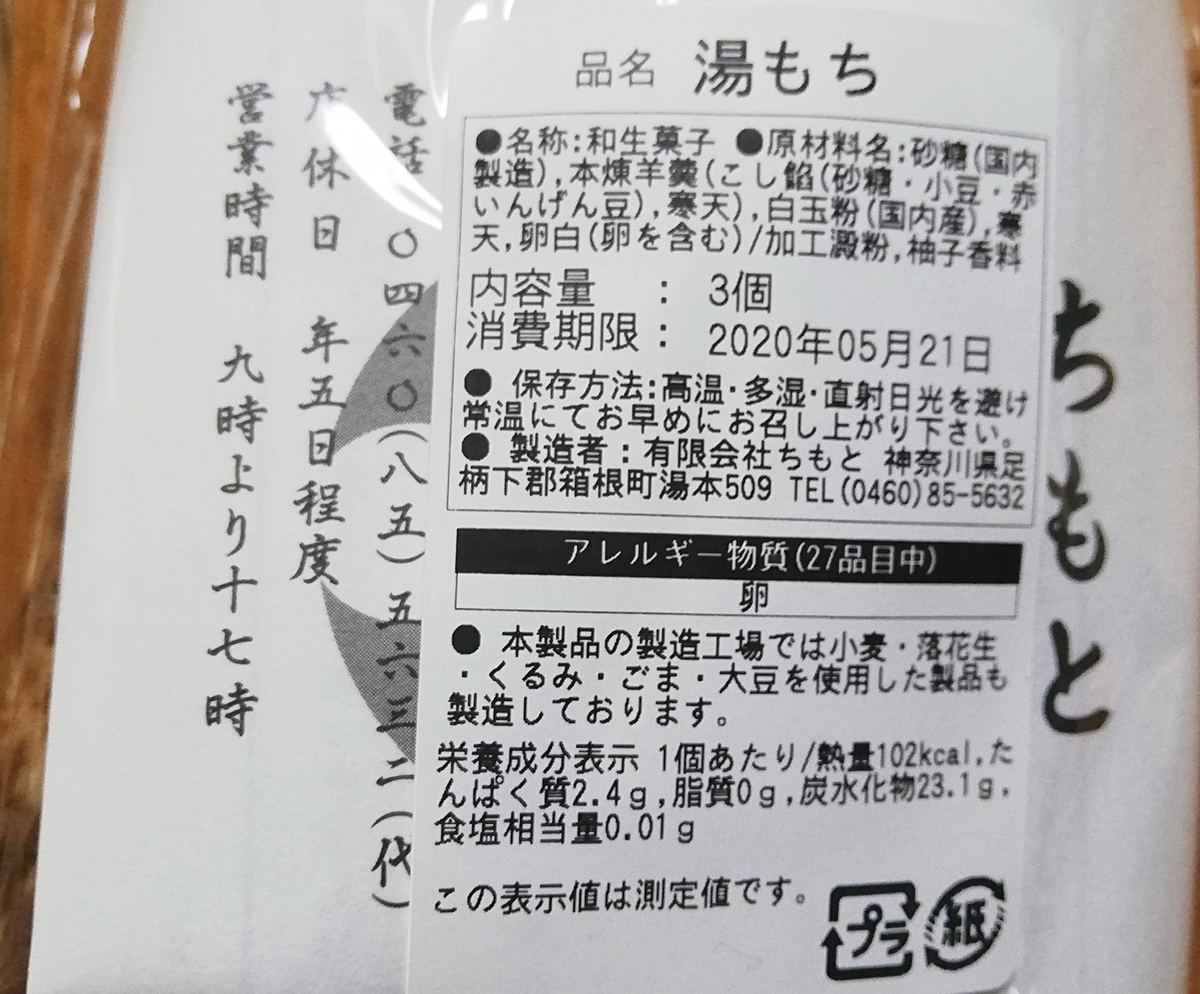 品名 湯もち
●名称:和生菓子 ●原材料名:砂糖(国内
製造),本煉羊羹(こし餡(砂糖・小豆・赤
いんげん豆),寒天),白玉粉(国内産),寒
天,卵白(卵を含む)/加工澱粉,柚子香料
内容量 : 3個
消費期限: 2020年05月21日
● 保存方法:高温・多湿・直射日光を避け
常温にてお早めにお召し上がり下さい。
● 製造者:有限会社ちもと 神奈川県足
柄下郡箱根町湯本509 TEL(0460)85-5632
アレルギー物質(27品目中)
卵
● 本製品の製造工場では小麦・落花生
・くるみ・ごま・大豆を使用した製品も
製造しております。
栄養成分表示 1個あたり/熱量102kcal,た
んぱく質2.4g,脂質0g,炭水化物23.1g,
食塩相当量0.01g
この表示値は測定値です。
プラ
紙
ちもと
電話 〇四六〇(八五)五六三二(代)
休日 年五日程度
営業時間 九時より十七時